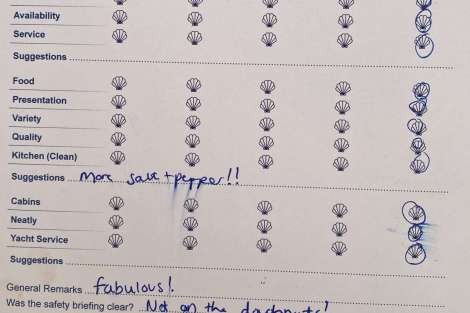 Availability
Service
Suggestions
Food
Presentation
Variety
Quality
Kitchen (Clean)
Suggestions More salt + pepper!!
Cabins
Neatly
Yacht Service
Suggestions
General Remarks fabulous!
Was the safety briefing clear? Not on the